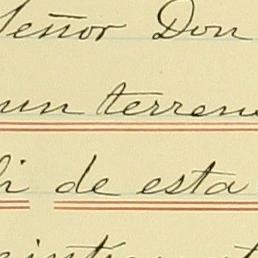 Señor Don
un terreno
de esta